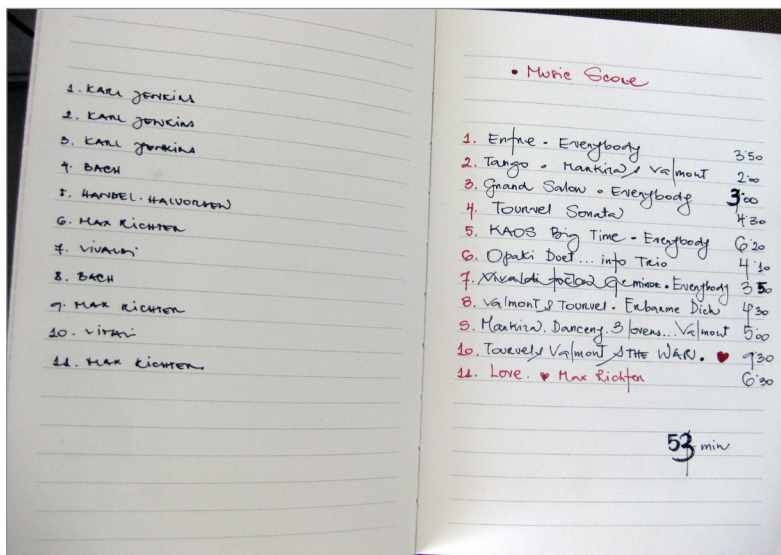 1. KARL JENKINS
2. KARL JENKINS
3. KARL JENKINS
4. BACH
5. HANDEL·HALVORSEN
6. MAX RICHTER
7. VIVALDI
8. BACH
9. MAX RICHTER
10. VITALI
11. MAX RICHTER
• Music Score
1. Entre - Everybody 3'50
2. Tango • Mankira & Valmont 2'00
3. Grand Salon • Everybody 3'00
4. Tourvel Sonata 4'30
5. KAOS Big Time - Everybody 6'20
6. Opaki Duet... into Trio 4'10
7. Vivaldi • Everybody 3 50
8. Valmont & Tourvel. Erbarme Dich 4'30
9. Mankira. Danceny. 3 lovers... Valmont 5'00
10. Tourvel & Valmont & THE WAR. ♥ 9'30
11. Love. ♥ Max Richter 6'30
53 min